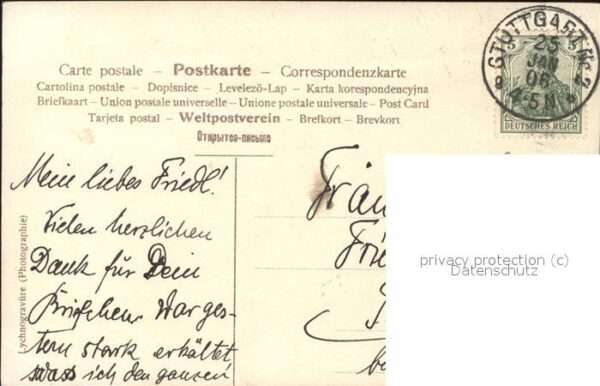 Carte postale – Postkarte – Correspondenzkarte
Cartolina postale – Dopisnice – Levelező-Lap – Karta korespondencyjna
Briefkaart – Union postale universelle – Unione postale universale – Post Card
Tarjeta postal – Weltpostverein – Brefkort – Brevkort
Открытое письмо
STUTTGART Nr. 2
25
JAN
06
4-5 N
5 5
DEUTSCHES REICH
Mein liebes Friedl!
Vielen herzlichen
Dank für Dein
Briefchen. War ges-
tern stark erkältet
sodass ich den ganzen
Lychnogravüre (Photographie)
Fräu
Frie
privacy protection (c)
Datenschutz